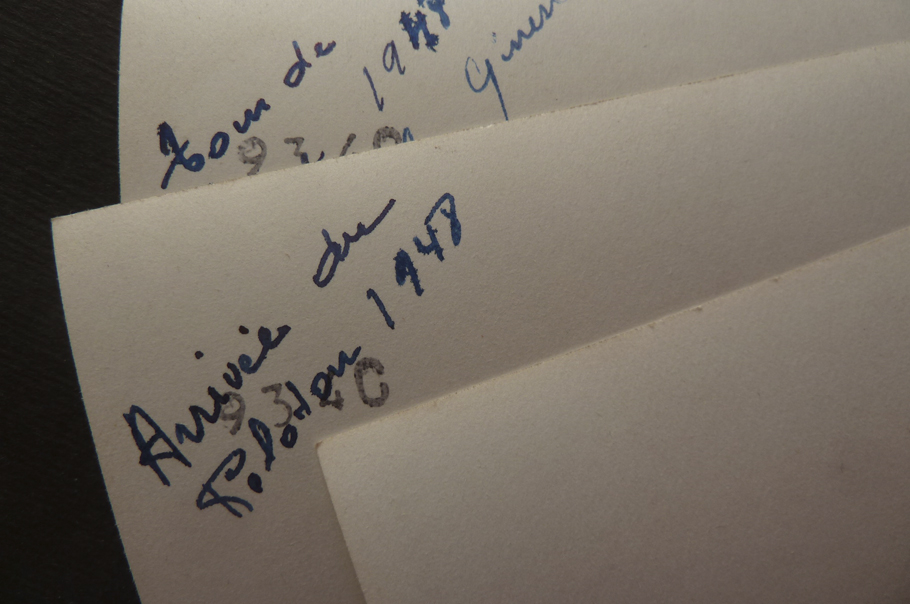 Tour de
1948
93
Arrivée du
Peloton 1948
93 40